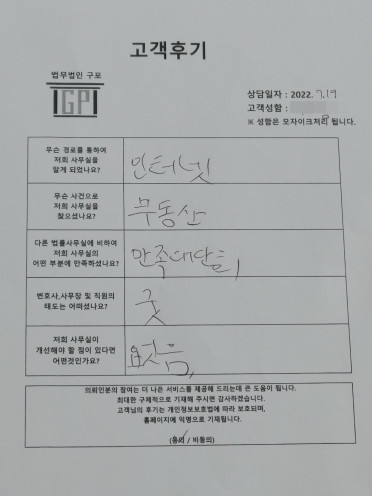 고객후기
법무법인 구포
GP
상담일자 : 2022. 7.19
고객성함 :
※ 성함은 모자이크처리 됩니다.
무슨 경로를 통하여
저희 사무실을
알게 되었나요?
인터넷
무슨 사건으로
저희 사무실을
찾으셨나요?
부동산
다른 법률사무실에 비하여
저희 사무실의
어떤 부분에 만족하셨나요?
만족대단히,
변호사,사무장 및 직원의
태도는 어떠셨나요?
굿
저희 사무실이
개선해야 할 점이 있다면
어떤것인가요?
없음,
의뢰인분의 참여는 더 나은 서비스를 제공해 드리는데 큰 도움이 됩니다.
최대한 구체적으로 기재해 주시면 감사하겠습니다.
고객님의 후기는 개인정보보호법에 따라 보호되며,
홈페이지에 익명으로 기재됩니다.
(동의 / 비동의)